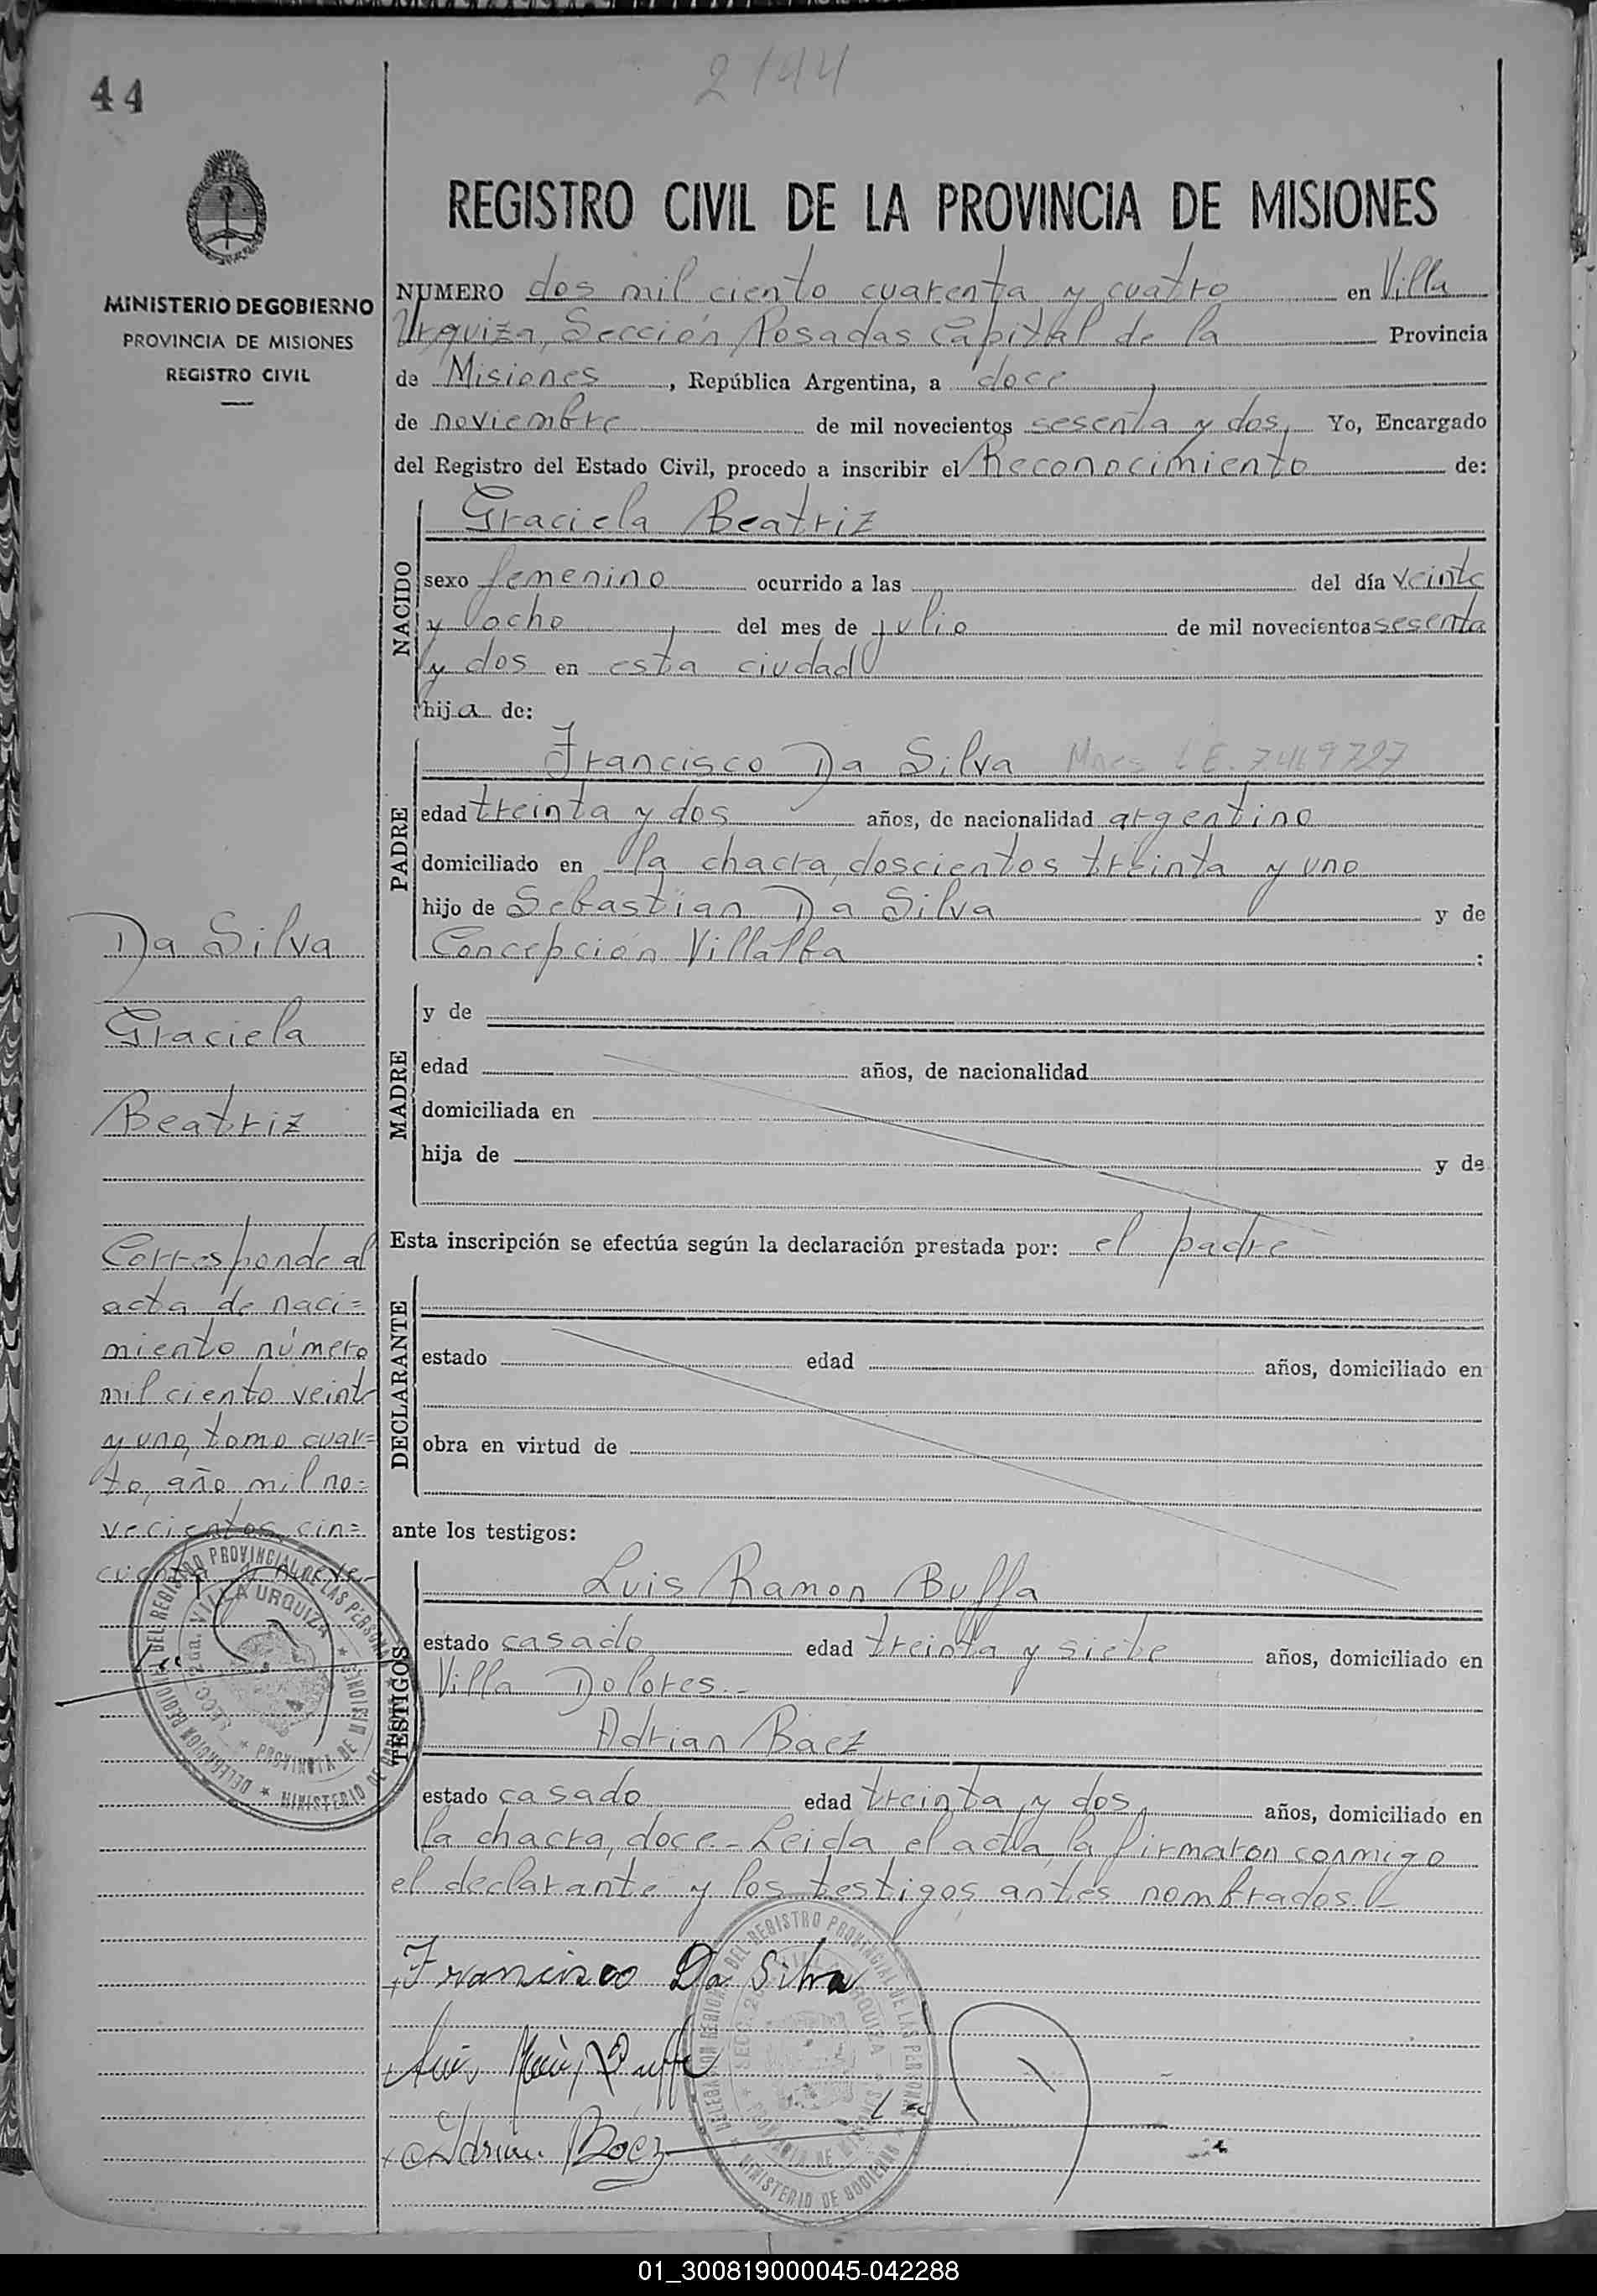 44
2144
MINISTERIO DE GOBIERNO
PROVINCIA DE MISIONES
REGISTRO CIVIL
REGISTRO CIVIL DE LA PROVINCIA DE MISIONES
NUMERO dos mil ciento cuarenta y cuatro en Villa
Urquiza, Sección Posadas Capital de la Provincia
de Misiones, República Argentina, a doce
de noviembre de mil novecientos sesenta y dos, Yo, Encargado
del Registro del Estado Civil, procedo a inscribir el Reconocimiento de:
NACIDO
Graciela Beatriz
sexo femenino ocurrido a las del día veinte
y ocho del mes de julio de mil novecientos sesenta
y dos en esta ciudad
hija de:
PADRE
Francisco Da Silva Mnes L E. 7469727
edad treinta y dos años, de nacionalidad argentino
domiciliado en la chacra, doscientos treinta y uno
hijo de Sebastian Da Silva y de
Concepción Villalba :
MADRE
y de
edad años, de nacionalidad
domiciliada en
hija de y de
Esta inscripción se efectúa según la declaración prestada por: el padre
DECLARANTE
estado edad años, domiciliado en
obra en virtud de
ante los testigos:
TESTIGOS
Luis Ramon Buffa
estado casado edad treinta y siete años, domiciliado en
Villa Dolores.-
Adrian Baez
estado casado edad treinta y dos, años, domiciliado en
la chacra, doce.- Leida el acta, la firmaron conmigo
el declarante y los testigos antes nombrados.-
Francisco Da Silva
Adrian Báez
Da Silva
Graciela
Beatriz
Corresponde al
acta de naci=
miento número
mil ciento veinte
y uno, tomo cuar=
to, año mil no=
vecientos cin=
cuenta y nueve.-
DELEGACION REGIONAL DEL REGISTRO PROVINCIAL DE LAS PERSONAS
SECC. 2da. VILLA URQUIZA
PROVINCIA DE MISIONES
MINISTERIO DE GOBIERNO
DELEGACION REGIONAL DEL REGISTRO PROVINCIAL DE LAS PERSONAS
SECC. 2da. VILLA URQUIZA
PROVINCIA DE MISIONES
MINISTERIO DE GOBIERNO
01_300819000045-042288